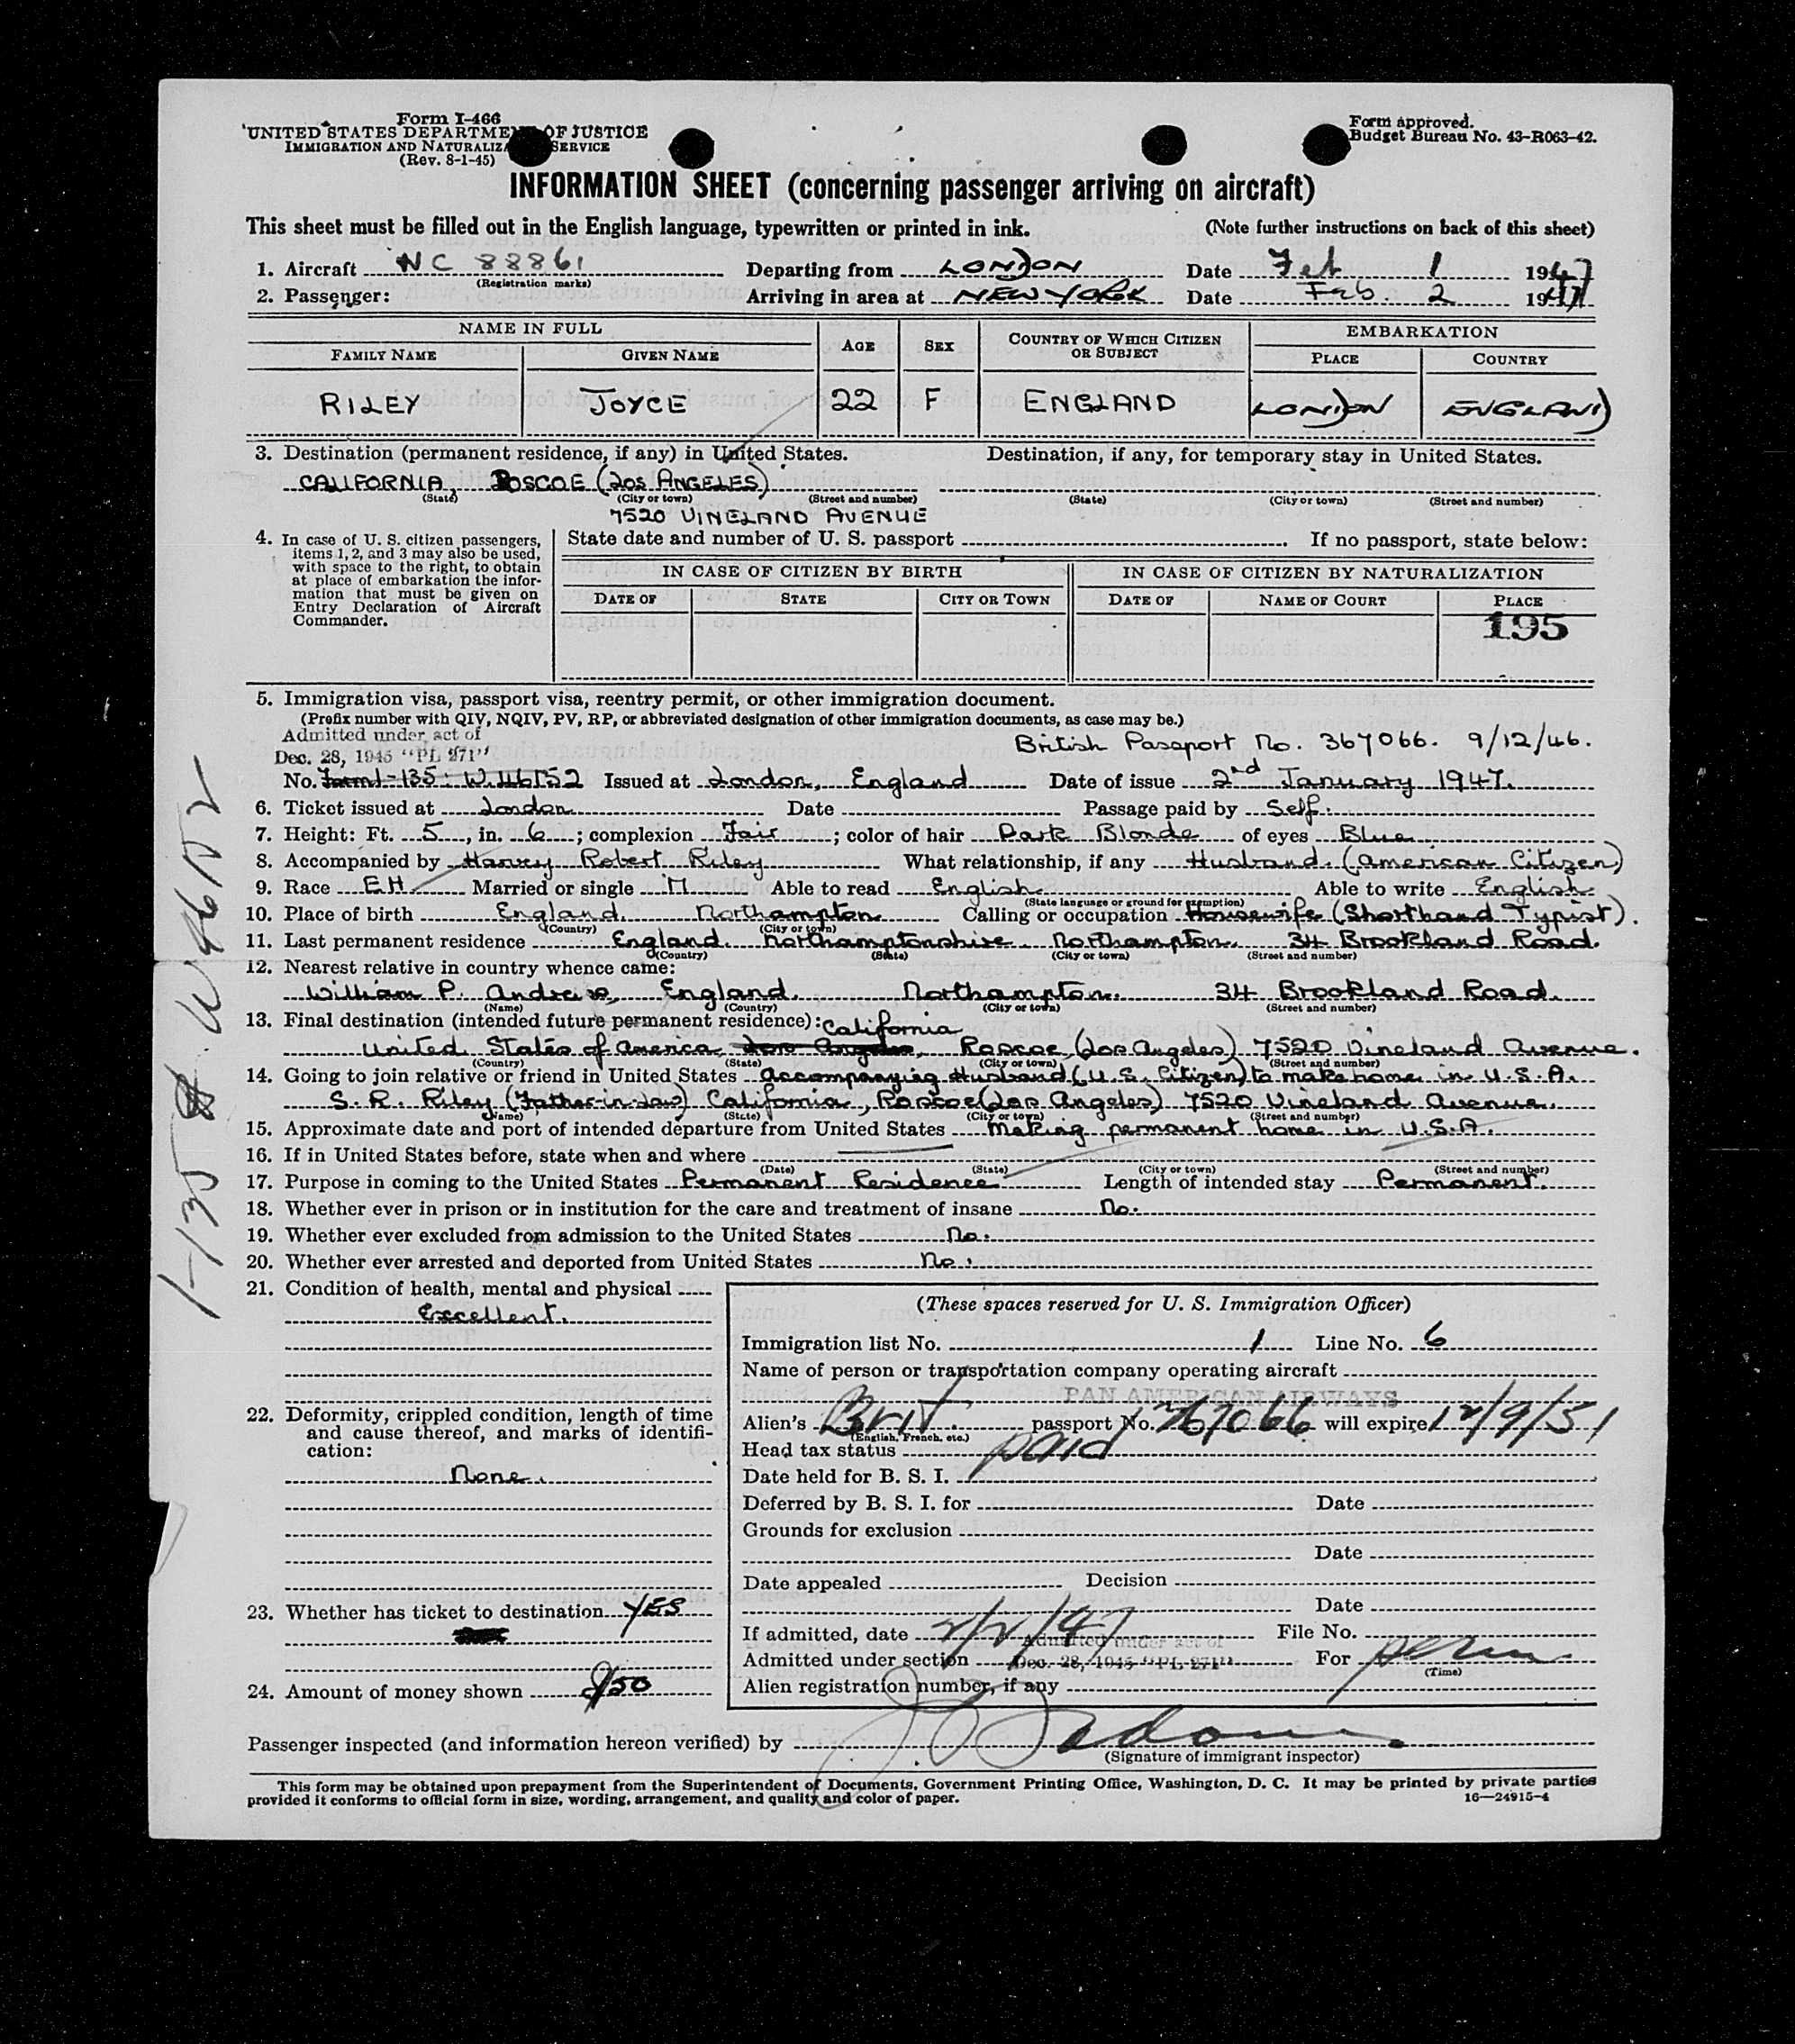 Form I-466
UNITED STATES DEPARTMENT OF JUSTICE
IMMIGRATION AND NATURALIZATION SERVICE
(Rev. 8-1-45)
Form approved.
Budget Bureau No. 43-R063-42.
INFORMATION SHEET (concerning passenger arriving on aircraft)
This sheet must be filled out in the English language, typewritten or printed in ink. (Note further instructions on back of this sheet)
1. Aircraft NC 88861 Departing from LONDON Date Feb 1 1947
(Registration marks)
2. Passenger: Arriving in area at NEW YORK Date Feb. 2 1947
NAME IN FULL AGE SEX COUNTRY OF WHICH CITIZEN OR SUBJECT EMBARKATION
FAMILY NAME GIVEN NAME PLACE COUNTRY
RILEY JOYCE 22 F ENGLAND LONDON ENGLAND
3. Destination (permanent residence, if any) in United States. Destination, if any, for temporary stay in United States.
CALIFORNIA, ROSCOE (LOS ANGELES)
(State) (City or town) (Street and number) (State) (City or town) (Street and number)
7520 VINELAND AVENUE
4. In case of U. S. citizen passengers, items 1, 2, and 3 may also be used, with space to the right, to obtain at place of embarkation the information that must be given on Entry Declaration of Aircraft Commander.
State date and number of U. S. passport If no passport, state below:
IN CASE OF CITIZEN BY BIRTH IN CASE OF CITIZEN BY NATURALIZATION
DATE OF STATE CITY OR TOWN DATE OF NAME OF COURT PLACE
195
5. Immigration visa, passport visa, reentry permit, or other immigration document.
(Prefix number with QIV, NQIV, PV, RP, or abbreviated designation of other immigration documents, as case may be.)
Admitted under act of
Dec. 28, 1945 "PL 271"
British Passport No. 367066. 9/12/46.
No. Form I-135: W.46152 Issued at London, England Date of issue 2nd January 1947.
6. Ticket issued at London Date Passage paid by Self.
7. Height: Ft. 5, in. 6; complexion Fair; color of hair Dark Blonde of eyes Blue
8. Accompanied by Harvey Robert Riley What relationship, if any Husband. (American Citizen)
9. Race EH Married or single M Able to read English Able to write English
(State language or ground for exemption)
10. Place of birth England. Northampton Calling or occupation Housewife (Shorthand Typist).
(Country) (City or town)
11. Last permanent residence England. Northamptonshire. Northampton. 34 Brookland Road.
(Country) (State) (City or town) (Street and number)
12. Nearest relative in country whence came:
William P. Andrews, England. Northampton. 34 Brookland Road.
(Name) (Country) (City or town) (Street and number)
13. Final destination (intended future permanent residence): California
United States of America, Los Angeles, Roscoe, (Los Angeles) 7520 Vineland Avenue.
(Country) (State) (City or town) (Street and number)
14. Going to join relative or friend in United States Accompanying Husband (U.S. Citizen) to make home in U.S.A.
S. R. Riley (Father-in-law) California, Roscoe (Los Angeles) 7520 Vineland Avenue.
(Name) (State) (City or town) (Street and number)
15. Approximate date and port of intended departure from United States Making permanent home in U.S.A.
16. If in United States before, state when and where
(Date) (State) (City or town) (Street and number)
17. Purpose in coming to the United States Permanent Residence Length of intended stay Permanent.
18. Whether ever in prison or in institution for the care and treatment of insane No.
19. Whether ever excluded from admission to the United States No.
20. Whether ever arrested and deported from United States No.
21. Condition of health, mental and physical
Excellent.
22. Deformity, crippled condition, length of time and cause thereof, and marks of identification:
None.
23. Whether has ticket to destination YES
24. Amount of money shown $150
(These spaces reserved for U. S. Immigration Officer)
Immigration list No. 1 Line No. 6
Name of person or transportation company operating aircraft
PAN AMERICAN AIRWAYS
Alien's Brit. passport No. 367066 will expire 12/9/51
(English, French, etc.)
Head tax status paid
Date held for B. S. I.
Deferred by B. S. I. for Date
Grounds for exclusion
Date
Date appealed Decision
Date
If admitted, date 2/2/47 File No.
Admitted under section Admitted under act of Dec. 28, 1945 "PL 271" For perm
(Time)
Alien registration number, if any
Passenger inspected (and information hereon verified) by
(Signature of immigrant inspector)
This form may be obtained upon prepayment from the Superintendent of Documents, Government Printing Office, Washington, D. C. It may be printed by private parties
provided it conforms to official form in size, wording, arrangement, and quality and color of paper. 16—24915-4
I-135 # W46152